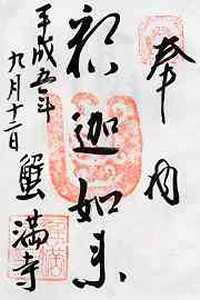 奉納
釈迦如来
平成五年
九月十二日
蟹満寺